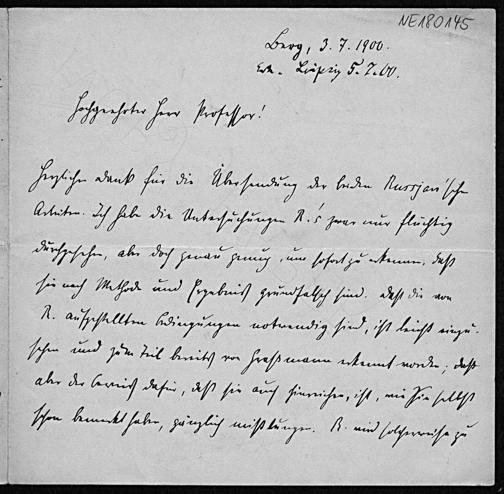 NE180145
Berg, 3. 7. 1900.
Leipzig 5. 7. 00.
Hochgeehrter Herr Professor!
Herzlichen Dank für die Übersendung der beiden Russjan'schen
Arbeiten. Ich habe die Untersuchungen R.'s zwar nur flüchtig
durchgesehen, aber doch genau genug, um sofort zu erkennen, daß
sie nach Methode und Ergebniß grundfalsch sind. Daß die von
R. aufgestellten Bedingungen notwendig sind, ist leicht einzu-
sehen und zum Teil bereits von Graßmann erkannt worden; daß
aber der Beweis dafür, daß sie auch hinreichen, ist, wie Sie selbst
schon bemerkt haben, gänzlich mißlungen. R. wird solcherweise zu